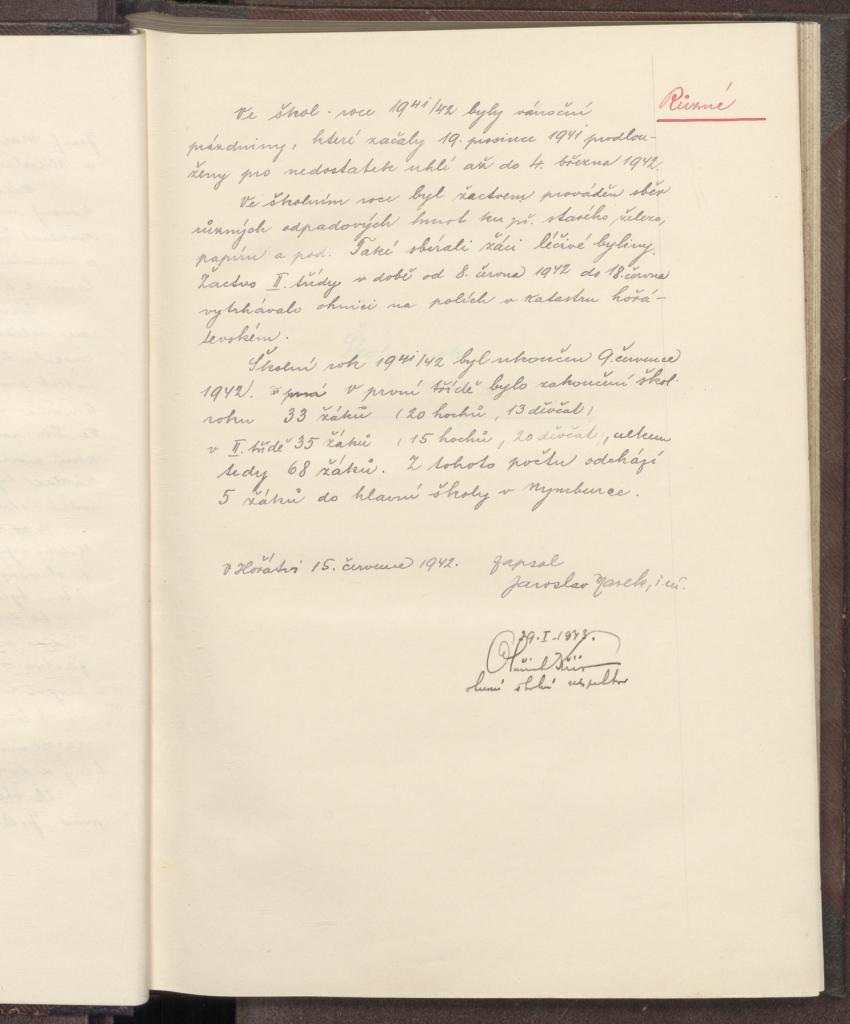 Různé
Ve škol. roce 1941/42 byly vánoční
prázdniny, které začaly 19. prosince 1941 prodlou-
ženy pro nedostatek uhlí až do 4. března 1942.
Ve školním roce byl žactvem prováděn sběr
různých odpadových hmot ku př. starého železa,
papíru a pod. Také sbírali žáci léčivé byliny.
Žactvo II. třídy v době od 8. června 1942 do 18. června
vytrhávalo ohnici na polích v katastru hořá-
tevském.
Školní rok 1941/42 byl ukončen 9. července
1942. V první třídě bylo zakončení škol.
roku 33 žáků (20 hochů, 13 děvčat)
v II. třídě 35 žáků (15 hochů, 20 děvčat), celkem
tedy 68 žáků. Z tohoto počtu odchází
5 žáků do hlavní školy v Nymburce.
V Hořátvi 15. července 1942. Zapsal
Jaroslav Marek,
29.I.1943.
okresní školní inspektor